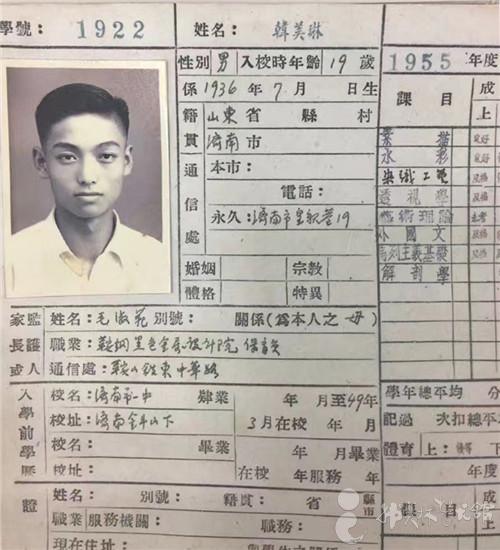 學號： 1922 姓名： 韓美琳
性別 男 入校時年齡 19 歲
係 1936 年 7 月 日生
籍貫 山東 省 縣 村
濟南 市
通信處 本市：
電話：
永久：濟南市皇親巷19
婚姻 宗教
體格 特異
家長或監護人 姓名：毛淑苑 別號： 關係（為本人之 母）
職業：鞍鋼黑色金屬設計院 保育員
通信處：鞍山鐵東中華路
入學前學歷 校名：濟南市一中 肄業 年 月至49年
校址：濟南 3月在校 年 月
校名： 畢業 年 月畢業
校址： 在校 年服務 年
證 姓名： 別號： 籍貫： 省 縣市
職業 服務機關： 職務：
現在住址：
1955 年度
課目 成
上
素描 良好
水彩 良好
染織工藝 及格
透視學 及格
藝術理論
外國文 及格
馬列主義基礎 及格
解剖學
學年總平均 分
記過 次扣總平
體育 上： 下
年度
課目 成